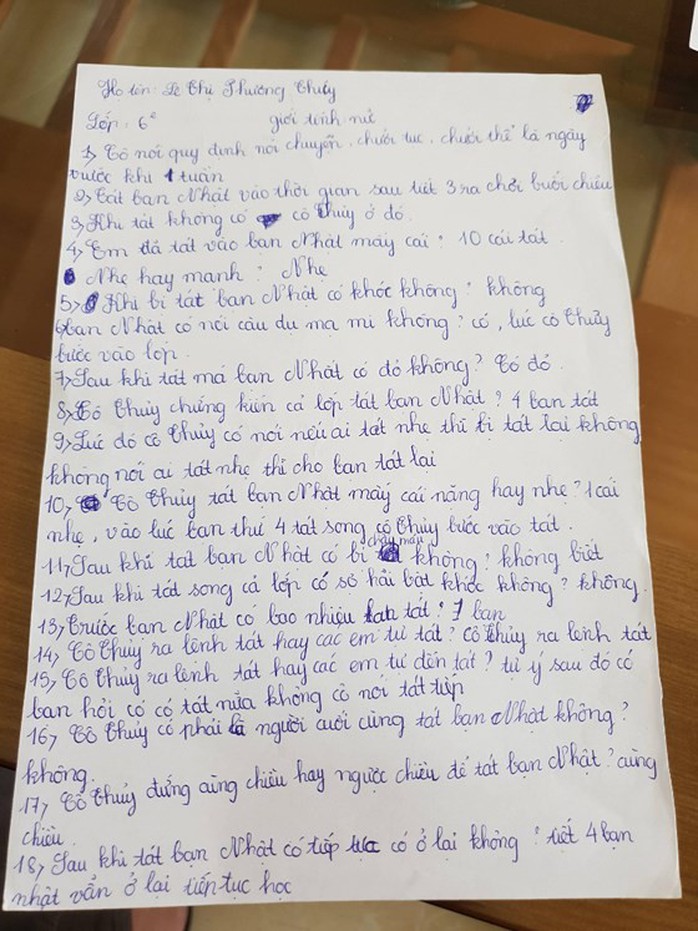 Họ tên: Lê Thị Phương Thúy
Lớp: 6e giới tính nữ
1, Cô nói quy định nói chuyện, chửi tục, chửi thề là ngày
trước khi 1 tuần
2, Tát bạn Nhật vào thời gian sau tiết 3 ra chơi buổi chiều
3, Khi tát không có cô Thủy ở đó.
4, Em đã tát vào bạn Nhật mấy cái? 10 cái tát.
Nhẹ hay mạnh? Nhẹ
5, Khi bị tát bạn Nhật có khóc không? không
6, bạn Nhật có nói câu dụ ma mi không? có, lúc cô Thủy
bước vào lớp.
7, Sau khi tát má bạn Nhật có đỏ không? Có đỏ.
8, Cô Thủy chứng kiến cả lớp tát bạn Nhật? 4 bạn tát
9, Lúc đó cô Thủy có nói nếu ai tát nhẹ thì bị tát lại không
không nói ai tát nhẹ thì cho bạn tát lại
10, Cô Thủy tát bạn Nhật mấy cái nặng hay nhẹ? 1 cái
nhẹ, vào lúc bạn thứ 4 tát song cô Thủy bước vào tát.
11, Sau khi tát bạn Nhật có bị chảy máu không? không biết
12, Sau khi tát song cả lớp có sợ hãi bật khóc không? không.
13, Trước bạn Nhật có bao nhiêu bạn tát? 7 bạn
14, Cô Thủy ra lệnh tát hay các em tự tát? cô Thủy ra lệnh tát
15, Cô Thủy ra lệnh tát hay các em tự đến tát? tự ý sau đó có
bạn hỏi cô có tát nữa không cô nói tát tiếp
16, Cô Thủy có phải là người cuối cùng tát bạn Nhật không?
không.
17, Cô Thủy đứng cùng chiều hay ngược chiều để tát bạn Nhật? cùng
chiều.
18, Sau khi tát bạn Nhật có tiếp tục có ở lại không? tiết 4 bạn
nhật vẫn ở lại tiếp tục học